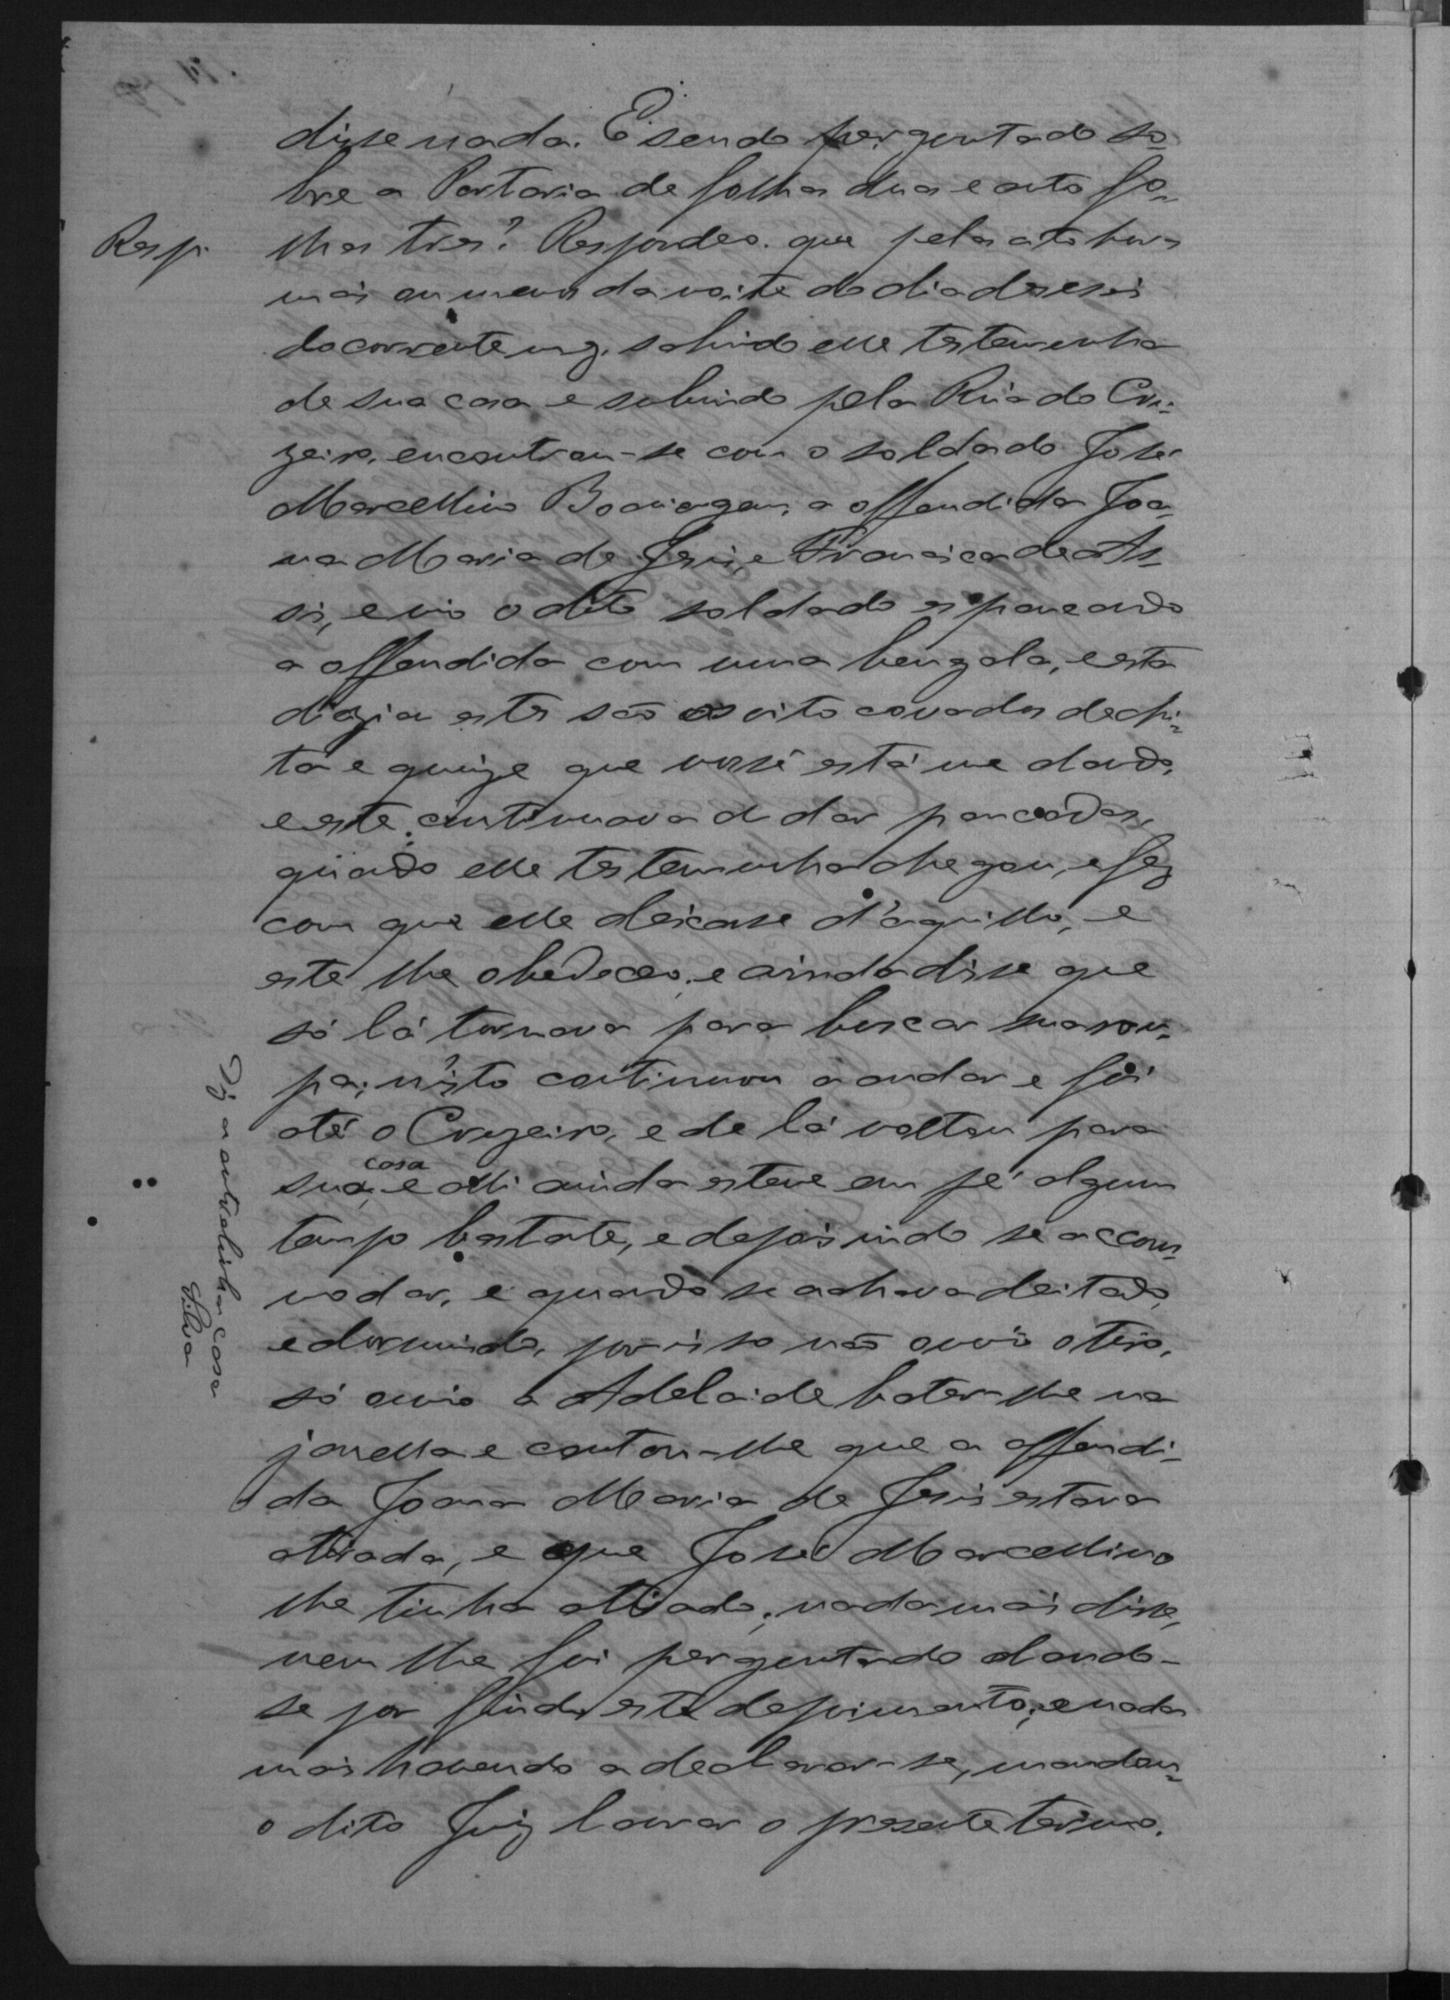 disse nada. E sendo perguntado so=
bre a Portaria de folhas duas e auto fo=
lhas tres? Respondeo que pelas oito horas
Resp.
mais ou menos da noite do dia deseseis
do corrente mez, sahindo elle testemunha
de sua casa e subindo pela Rúa do Cru=
zeiro, encontrou-se com o soldado José
Marcellino a offendida Joa=
na Maria de Jesus, e Francisca de As=
sis, e vio o dito soldado espancando
a offendida com uma bengala, e esta
dizia estes são os oito covados de chi=
ta e quinze que vossé está me dando,
e este continuava a dar pancadas,
quando elle testemunha chegou, e fez
com que elle deixasse d'aquillo, e
este lhe obedeceo, e ainda disse que
só lá tornava para buscar sua rou=
pa; n'isto continuou a andar e foi
até o Cruzeiro, e de lá voltou para
sua casa, e alli ainda esteve em pé algum
tempo bastate, e depois indo se accom=
modar, e quando se achava deitado,
e dormindo, por isso não ouvio o tiro,
só ouvio a Adelaide bater-lhe na
janella e contou-lhe que a offendi=
da Joana Maria de Jesus estava
atirada, e que José Marcellino
lhe tinha atirado; nada mais disse,
nem lhe foi perguntado dando-
se por findo este depoimento; e nada
mais havendo a declarar-se, mandou
o dito Juiz lavrar o presente termo.
Diz a entrelinha casa
Silva